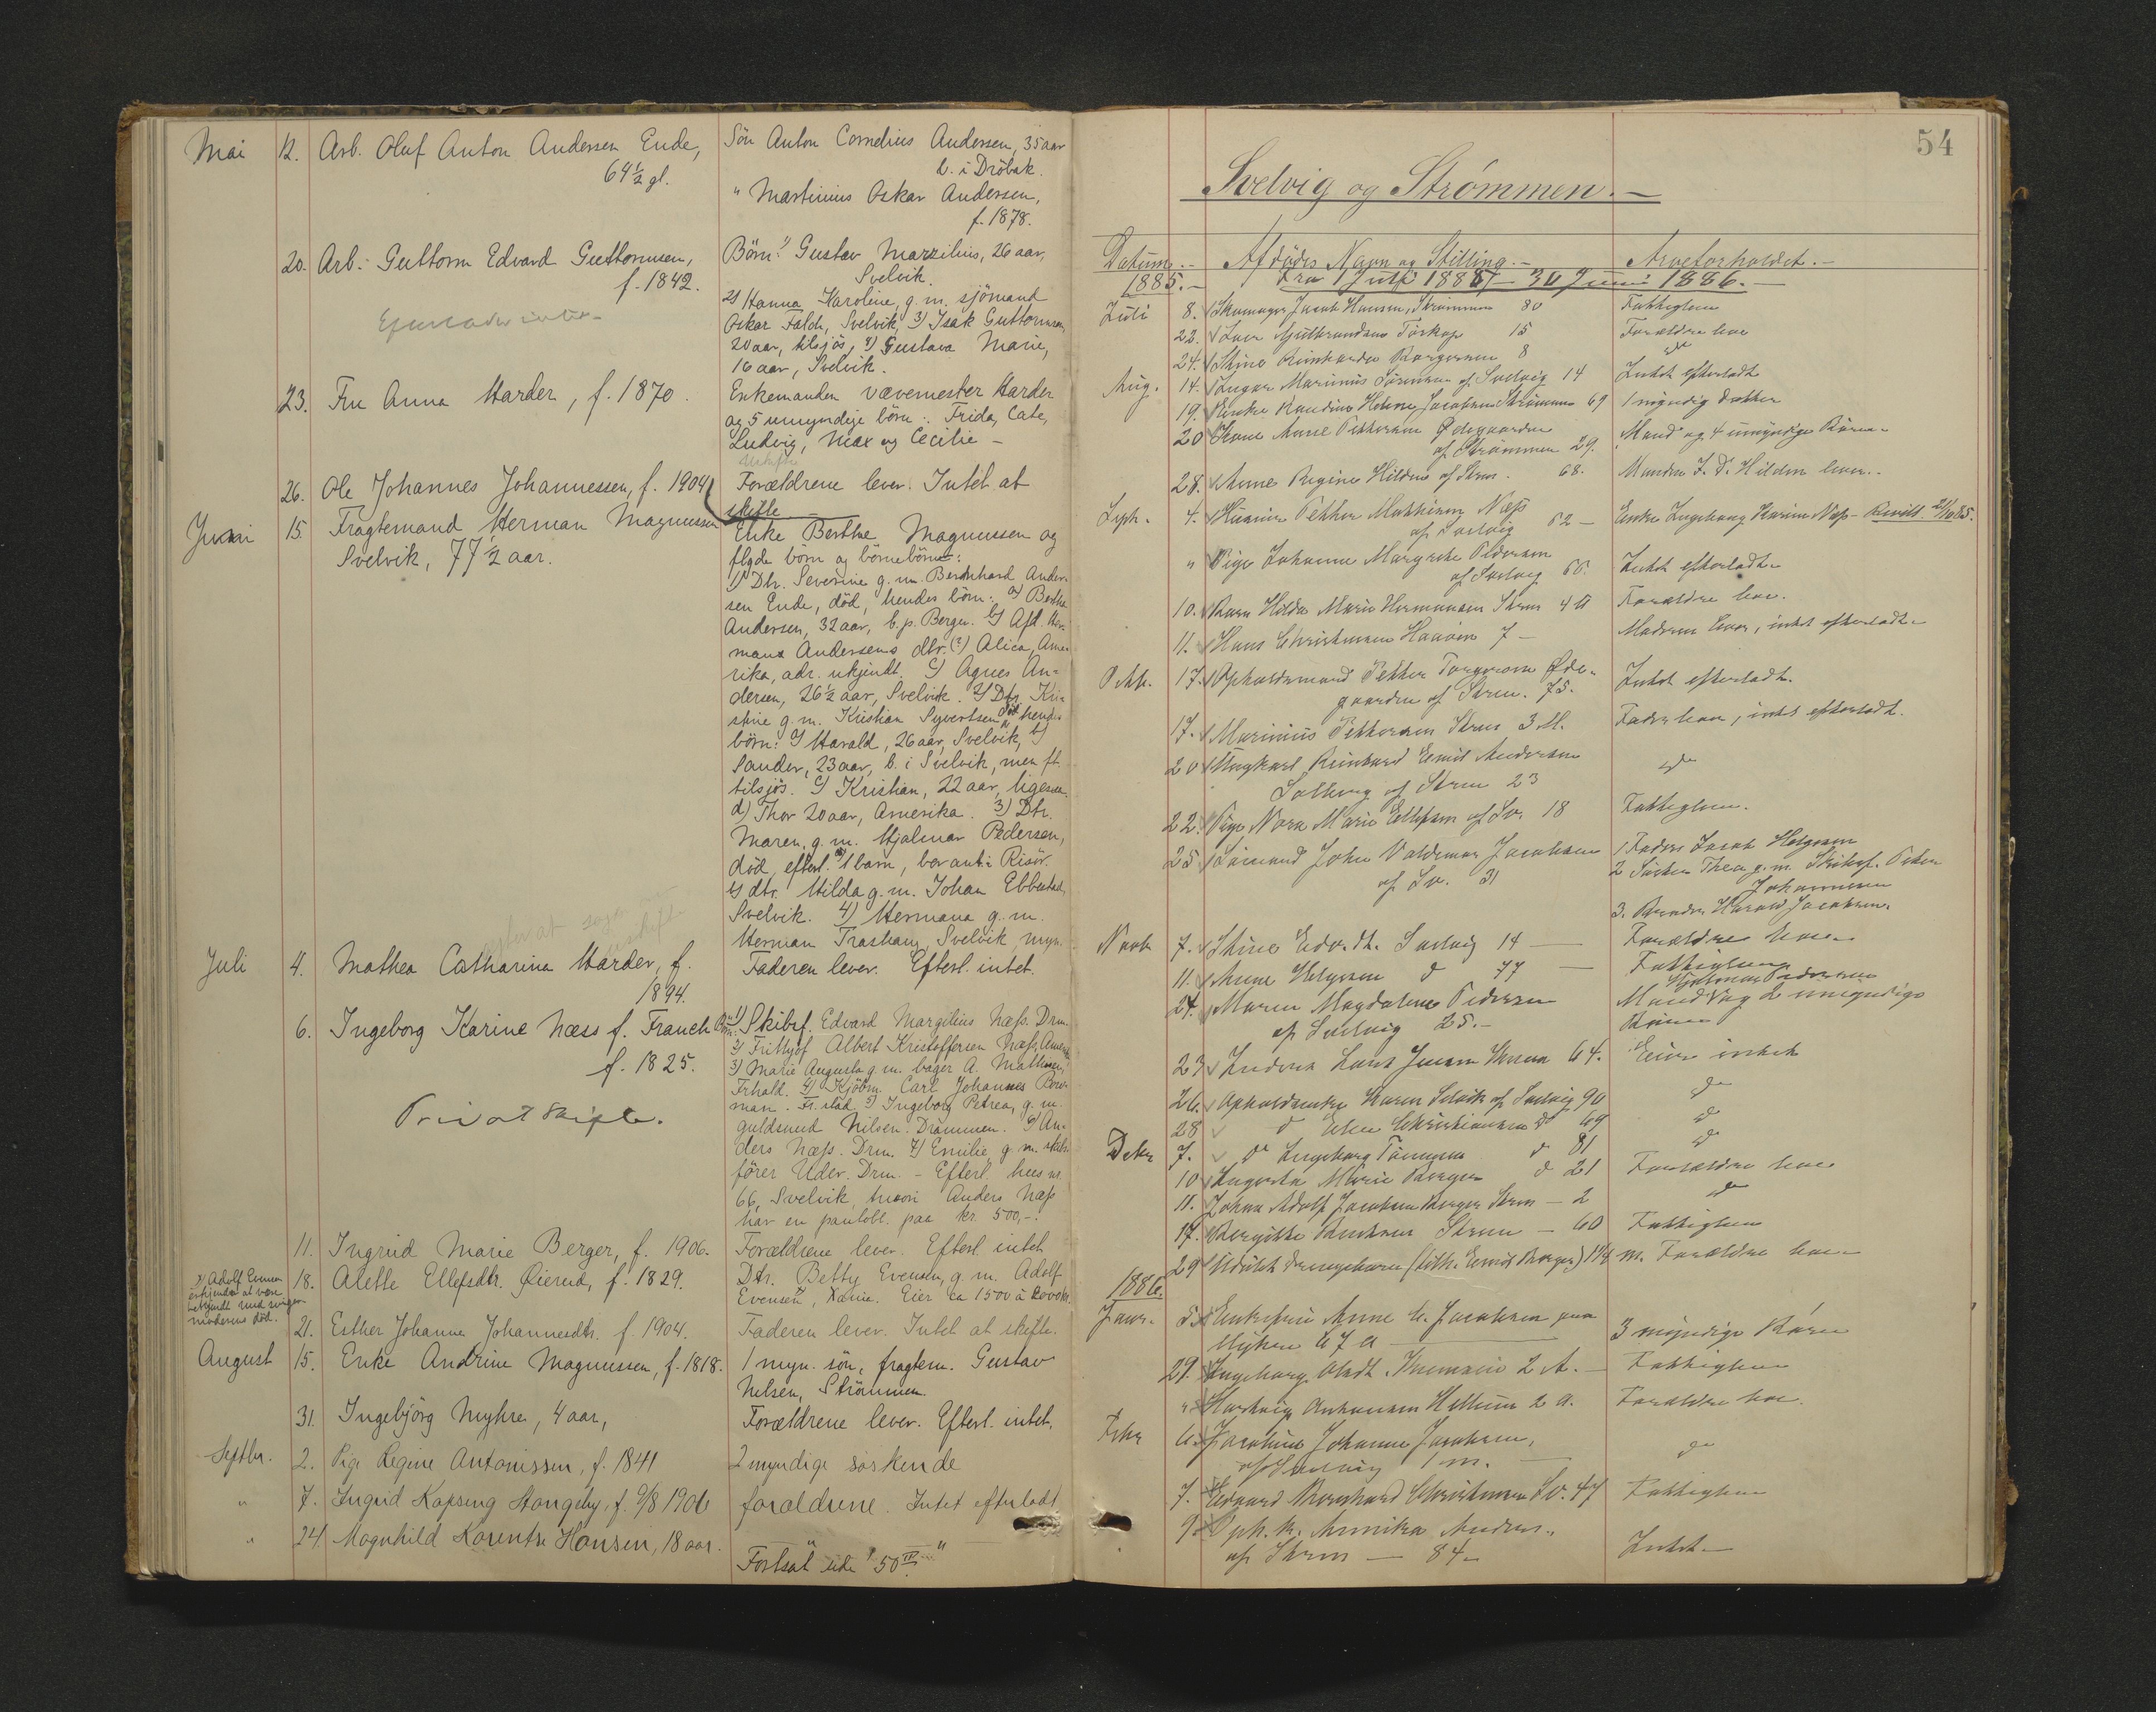 Mai 12. Arb. Oluf Anton Andersen Ende,
64½ gl.
Sön Anton Cornelius Andersen, 35 aar
b. i Dröbak.
" Martinius Oskar Andersen,
f. 1878.
20. Arb. Guttorm Edvard Guttormsen,
f. 1842.
Börn: 1) Gustav Marzilius, 26 aar,
Svelvik.
2) Hanna Karoline, g. m. sjömand
Oskar Falch, Svelvik, 3) Isak Guttormsen
20 aar, tilsjös, 4) Gustava Marie,
16 aar, Svelvik.
23. Fru Anna Harder, f. 1870.
Enkemanden vævemester Harder
og 5 umyndige börn: Frida, Cate,
Ludvig, Max og Cecilie –
26. Ole Johannes Johannessen, f. 1904
Forældrene lever. Intet at
skifte
Juni 15. Fragtemand Herman Magnussen
Svelvik, 77½ aar.
Enke Berthe Magnussen og
flgde börn og börnebörn:
1) Dtr. Severine g. m. Bernhard Ander-
sen Ende, död, hendes börn: a) Berthe
Andersen, 32 aar, b. p. Berger. b) Afd. Her-
mans Andersens dtr. (?) Alica, Ame-
rika, adr. ukjendt. c) Agnes An-
dersen, 26½ aar, Svelvik. 2) Dtr. Kri-
stine g. m. Kristian Syvertsen död hendes
börn: a) Harald, 26 aar, Svelvik, b)
Sander, 23 aar, b. i Svelvik, men ft.
tilsjös. c) Kristian, 22 aar, ligesaa.
d) Thor 20 aar, Amerika. 3) Dtr.
Maren, g. m. Hjalmar Pedersen,
död, efterl. 1 barn, bor i Risör.
4) dtr. Hilda g. m. Johan Ebbestad,
Svelvik. 4) Hermana g. m.
Herman Trashaug, Svelvik, myn.
Juli 4. Mathea Catharina Harder, f.
1894.
Faderen lever. Efterl. intet.
6. Ingeborg Karine Næss f. Franck
f. 1825.
Privat skifte.
1) Skibsf. Edvard Margilius Næss. Drm.
2) Frithjof Albert Kristoffersen Næss, Amerika
3) Marie Augusta g. m. bager A. Mathisen,
Frhald. 4) Kjöbm. Carl Johannes
man. Fr.stad 5) Ingeborg Petrea, g. m.
guldsmed Nilsen. Drammen. 6) An-
ders Næss. Drm. 7) Emilie, g. m. skibs-
förer Drm. – Efterl. hus nr.
66, Svelvik, hvori Anders Næss
har en pantobl. paa kr. 500,-.
11. Ingrid Marie Berger, f. 1906.
Forældrene lever. Efterl. intet
18. Alette Ellefsdtr. Öierud, f. 1829.
Dtr. Betty Evensen, g. m. Adolf
Evensen, Eier ca 1500 à 2000 kr.
Adolf Evensen
erkjender at være
bekjendt med sviger-
moderens död.
21. Esther Johanne Johannesdtr. f. 1904.
Faderen lever. Intet at skifte.
August 15. Enke Andrine Magnussen, f. 1818.
1 myn. sön, fragtem. Gustav
Nelsen, Strömmen
31. Ingebjörg Myhre, 4 aar,
Forældrene lever. Efterl. intet.
Septbr. 2. Pige Regine Antonissen, f. 1841
2 myndige söskende
" 7. Ingrid Kopseng Stangeby, f. 9/8 1906
forældrene. Intet efterladt
" 24. Magnhild Karentse Hansen, 18 aar.
Fortsat side "50 IV"
54
Svelvig og Strømmen. –
Datum. – Afdödes Navn og Stilling. – Arveforholdet. –
1885. – Fra 1 Juli 1885 – 30 Juni 1886. –
Juli 8. Skomager Jacob Hansen, Strømmen 80 Fattiglem
22. Gulbrandsen Torkop 15 Forældre leve
24. Stine Reinhardine Borgersen 8 do
Aug. 14. Marinius Sörensen af Svelvig 14 Intet efterladt
19. Enke Randine Helene Jacobsen Strømmen 69 1 myndig Datter
20 Kone Anne Pettersen Ødegaarden
af Strømmen 29. Mand og 4 umyndige Börn.
28. Anne Regine Hilden af Strm. 68. Manden J. D. Hilden lever.
Septr. 4. Petter Mathisen Næss
af Svelvig 62 – Enke Ingeborg Karine Næss – 21/10 85.
" Pige Johanne Margrethe Pedersen
af Svelvig 60. Intet efterladt.
10. Barn Hilda Marie Hermansen Strm 4 A Forældre leve.
11. Hans Christensen 7 – Moderen lever, intet efterladt.
Octb. 17. Opholdsmand Petter Torgersen Øde-
gaarden af Strm. 75. Intet efterladt.
17. Marinius Pettersen Strm 3 M. Fader lever, intet efterladt.
20 Ungkarl Reinhard Emil Andersen
Solberg af Strm 23 do
22. Pige Nora Marie Ellefsen af Sv. 18 Fattiglem.
25 Sömand John Valdemar Jacobsen
af Sv. 31
1 Fader Jacob Helgesen
2 Söster Thea g. m. Skibsf. Peter
Johannesen
3. Broder Harald Jacobsen.
Novb 7. Stine Edv. dt. Svelvig 14 – Forældre leve
11. Anne Helgesen d 77 – Fattiglem
24. Maren Magdalene Pedersen
af Svelvig 25. –
Hjalmar Pedersen
Mand og 2 umyndige
Börn
23 Lars Jensen Strøm 64. Eier intet
26. Opholdsenke Karen Selvik af Svelvig 90 do
28 d Christiansen d 69 do
Decbr 7. do Ingeborg Tönnesen d 81 do
10 Augusta Marie Berger d 21 Forældre leve
11. Johan Adolf Jacobsen Berger Strm – 2 do
17. Bergitte Knudsen Strm – 60 Fattiglem
29 Udöbt Drengebarn (Emil Berger) 1¼ m. Forældre leve
1886.
Janr. 5. Enkefru Anne C. Jacobsen paa
Myhren 67 A – 3 myndige Börn
29. Ingeborg 2 A. – Fattiglem
" Hartvig Antonsen Hellum 2 A. Forældre leve.
Febr 6. Jacobine Johanne Jacobsen,
af Svelvig 1 m. do
7. Edvard Bernhard Christensen Sv. 47 Fattiglem
9. Oph. k. Annika Anders.
af Strm – 84 – Intet. –